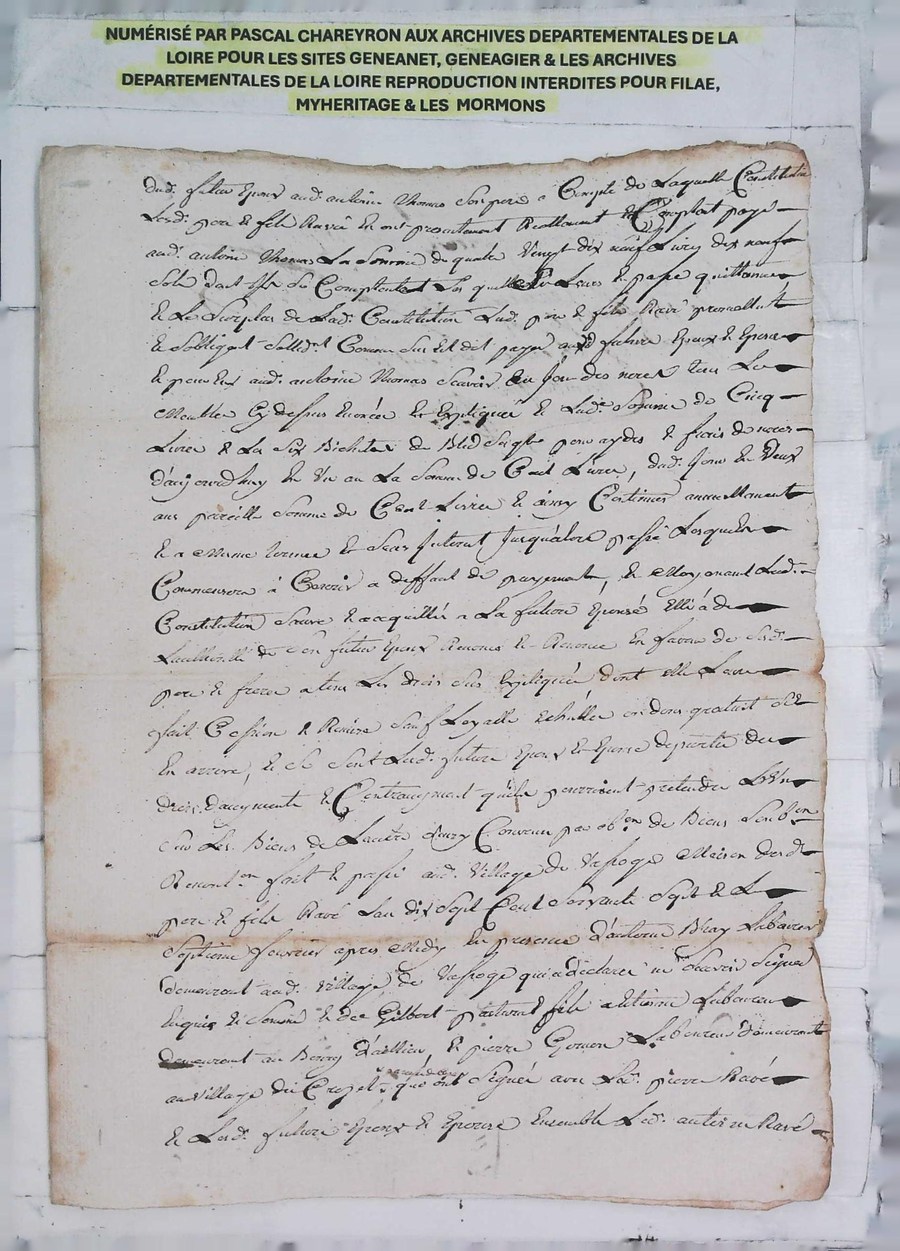 NUMÉRISÉ PAR PASCAL CHAREYRON AUX ARCHIVES DEPARTEMENTALES DE LA
LOIRE POUR LES SITES GENEANET, GENEAGIER & LES ARCHIVES
DEPARTEMENTALES DE LA LOIRE REPRODUCTION INTERDITES POUR FILAE,
MYHERITAGE & LES MORMONS
dud. futur Epoux aud. antoine Thomas Son pere a Compte de Laquelle Constitution
Lesd. pere et fils Ravé En ont presentement Reallement et Comptant payé
aud. antoine Thomas La Somme de quatre Vingt dix neuf Livres dix neuf
Sols dont Ils Se Contentent Les quitte et passe quittance
Et Le Surplus de Lad. Constitution Lesd. pere et fils Ravé promettent
et Sobligent Sollid.nt Comme Sus Est dit payer aud futurs Epoux et Epouse
et pour Eux aud. antoine Thomas Scavoir Au Jour des noces tous Les
Meubles Cy dessus Enoncés et Expliqués et Lad.e Somme de Cinq
Livres & La Six Bichets de Bled Seigle pour aydes et frais de noces
d'aujourdhuy En Un an La Somme de Cent Livres, dud. Jour En Deux
ans pareille Somme de Cent Livres et ainsy Continuer annuellement
a Meme terme et Sans Interest Jusqualors passé Lesquels
Commencera à Courir a deffaut de payement, et Moyenant Lad.
Constitution la future Epouse Elle à de
de Son futur Epoux Renoncé et Renonce En faveur de Sesd.
pere et frere a tous Les droits Sus Expliqués dont Elle Leur
fait Cession & Remise Sauf Loyalle Echutte ou dons gratuit Sil
En arrive, et Se Sont Lesd. futurs Epoux et Epouse departis des
droits daugments et Contraugment quils pourroient pretendre LUn
Sur Les Biens de Lautre ainsy Convenu par ob.on de Biens Soub.on
Renont.on fait et passé aud. Village de Maison desd.
pere et fils Ravé Lan dix Sept Cent Soixante Sept et Le
Septieme fevrier apres Midy En presence d'antoine Laboureur
demeurant aud. Village de qui a declaré ne Scavoir Signer
Enquis et Sommé et de Gilbert fils a Etienne Laboureur
demeurant au Bourg d'aillieu, et pierre Laboureur demeurant
au Village du Crozet qui ont Signés avec Led. pierre Ravé
et Lesd. futurs Epoux et Epouse Ensemble Led. antoine Ravé